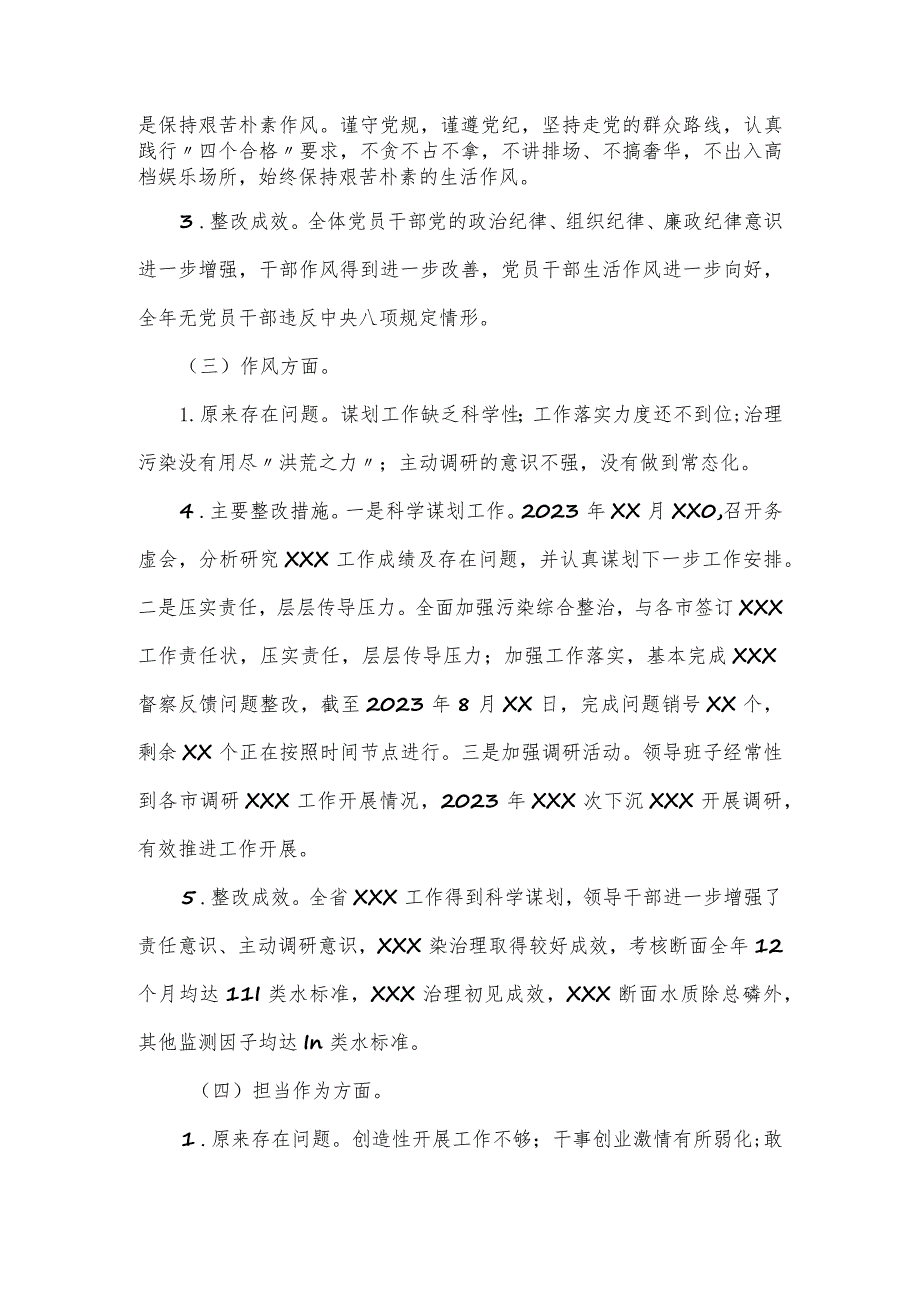 是保持艰苦朴素作风。谨守党规，谨遵党纪，坚持走党的群众路线，认真
践行〃四个合格〃要求，不贪不占不拿，不讲排场、不搞奢华，不出入高
档娱乐场所，始终保持艰苦朴素的生活作风。
3．整改成效。全体党员干部党的政治纪律、组织纪律、廉政纪律意识
进一步增强，干部作风得到进一步改善，党员干部生活作风进一步向好，
全年无党员干部违反中央八项规定情形。
（三）作风方面。
1.原来存在问题。谋划工作缺乏科学性；工作落实力度还不到位;治理
污染没有用尽〃洪荒之力〃；主动调研的意识不强，没有做到常态化。
4．主要整改措施。一是科学谋划工作。2023年XX月XXO,召开务
虚会，分析研究XXX工作成绩及存在问题，并认真谋划下一步工作安排。
二是压实责任，层层传导压力。全面加强污染综合整治，与各市签订XXX
工作责任状，压实责任，层层传导压力；加强工作落实，基本完成XXX
督察反馈问题整改，截至2023年8月XX日，完成问题销号XX个，
剩余XX个正在按照时间节点进行。三是加强调研活动。领导班子经常性
到各市调研XXX工作开展情况，2023年XXX次下沉XXX开展调研，
有效推进工作开展。
5．整改成效。全省XXX工作得到科学谋划，领导干部进一步增强了
责任意识、主动调研意识，XXX染治理取得较好成效，考核断面全年12
个月均达11l类水标准，XXX治理初见成效，XXX断面水质除总磷外，
其他监测因子均达ln类水标准。
（四）担当作为方面。
1．原来存在问题。创造性开展工作不够；干事创业激情有所弱化;敢